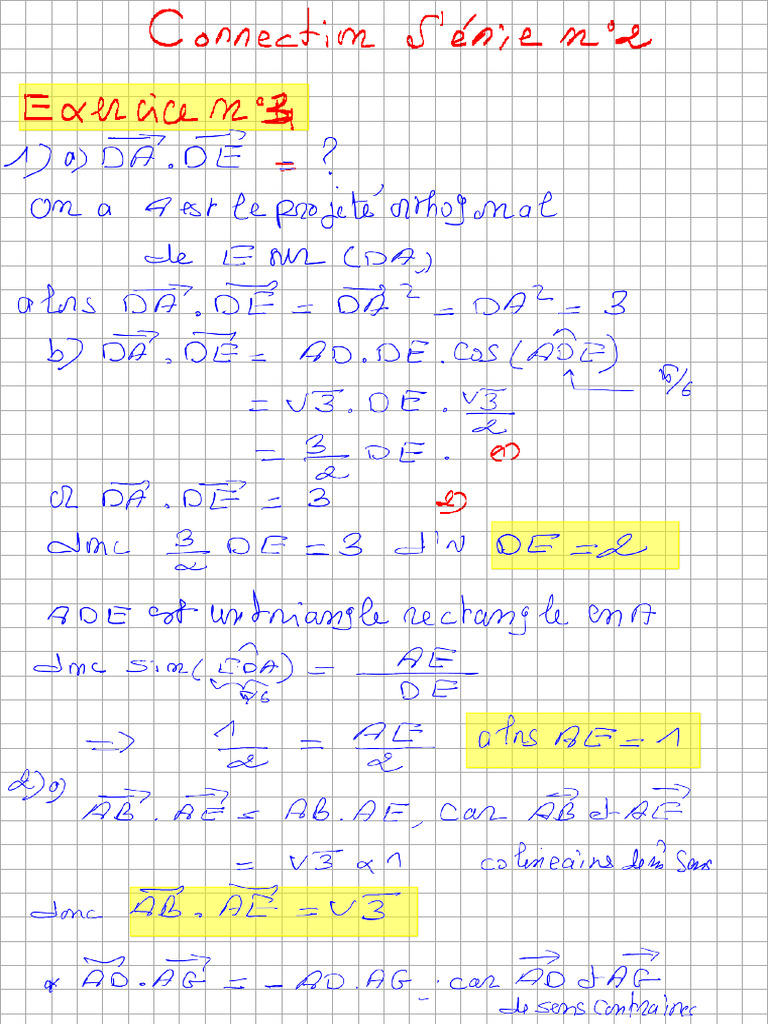 Correction Série n°2
Exercice n°3
1) a) DA⃗ . DE⃗ = ?
on a A est le projeté orthogonal
de E sur (DA)
alors DA⃗ . DE⃗ = DA⃗² = DA² = 3
b) DA⃗ . DE⃗ = AD . DE . cos(ADE)
π/6
= √3 . DE . √3/2
= 3/2 DE . 1)
or DA⃗ . DE⃗ = 3 2)
donc 3/2 DE = 3 d'où DE = 2
ADE est un triangle rectangle en A
donc sin(EDA) = AE/DE
π/6
=> 1/2 = AE/2 alors AE = 1
2) a)
AB⃗ . AE⃗ = AB . AE, car AB⃗ et AE⃗
= √3 × 1 colinéaires de m̂ sens
donc AB⃗ . AE⃗ = √3
* AD⃗ . AG⃗ = - AD . AG . car AD⃗ et AG⃗
de sens contraires